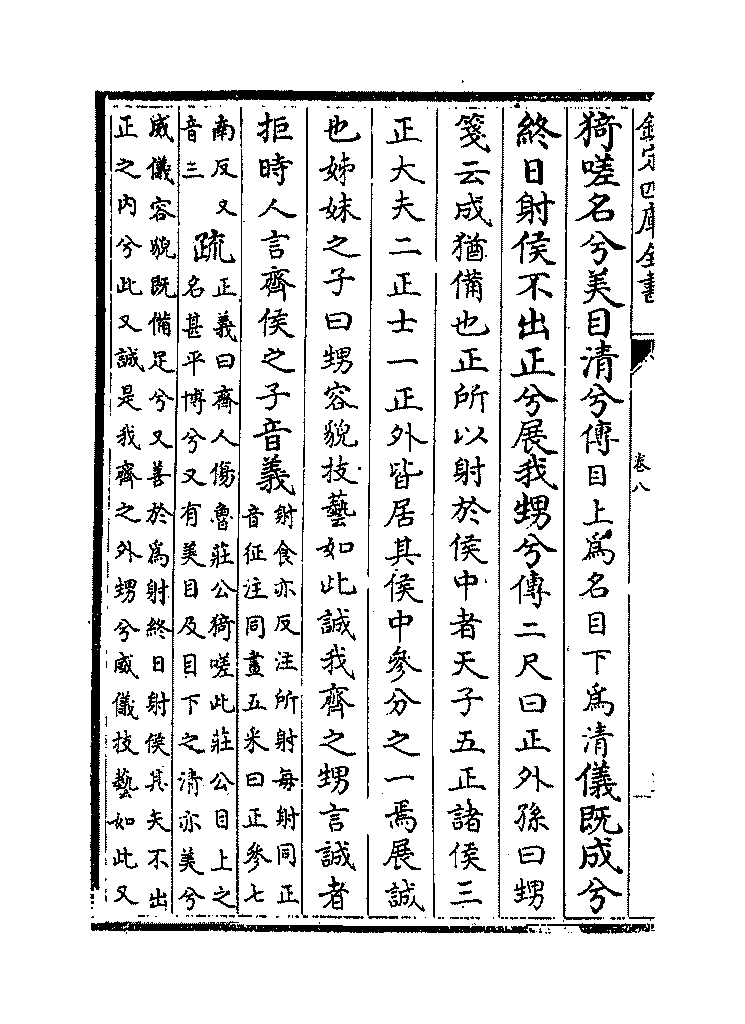 欽定四庫全書
卷八
猗嗟名兮美目清兮傳目上為名目下為清儀既成兮
終日射侯不出正兮展我甥兮傳二尺曰正外孫曰甥
箋云成猶備也正所以射於侯中者天子五正諸侯三
正大夫二正士一正外皆居其侯中參分之一焉展誠
也姊妹之子曰甥容貌技藝如此誠我齊之甥言誠者
拒時人言齊侯之子音義
射食亦反注所射每射同正
音征注同畫五采曰正參七
南反又
音三
疏
正義曰齊人傷魯莊公猗嗟此莊公目上之
名甚平博兮又有美目及目下之清亦美兮
威儀容貌既備足兮又善於為射終日射侯其矢不出
正之内兮此又誠是我齊之外甥兮威儀技藝如此又